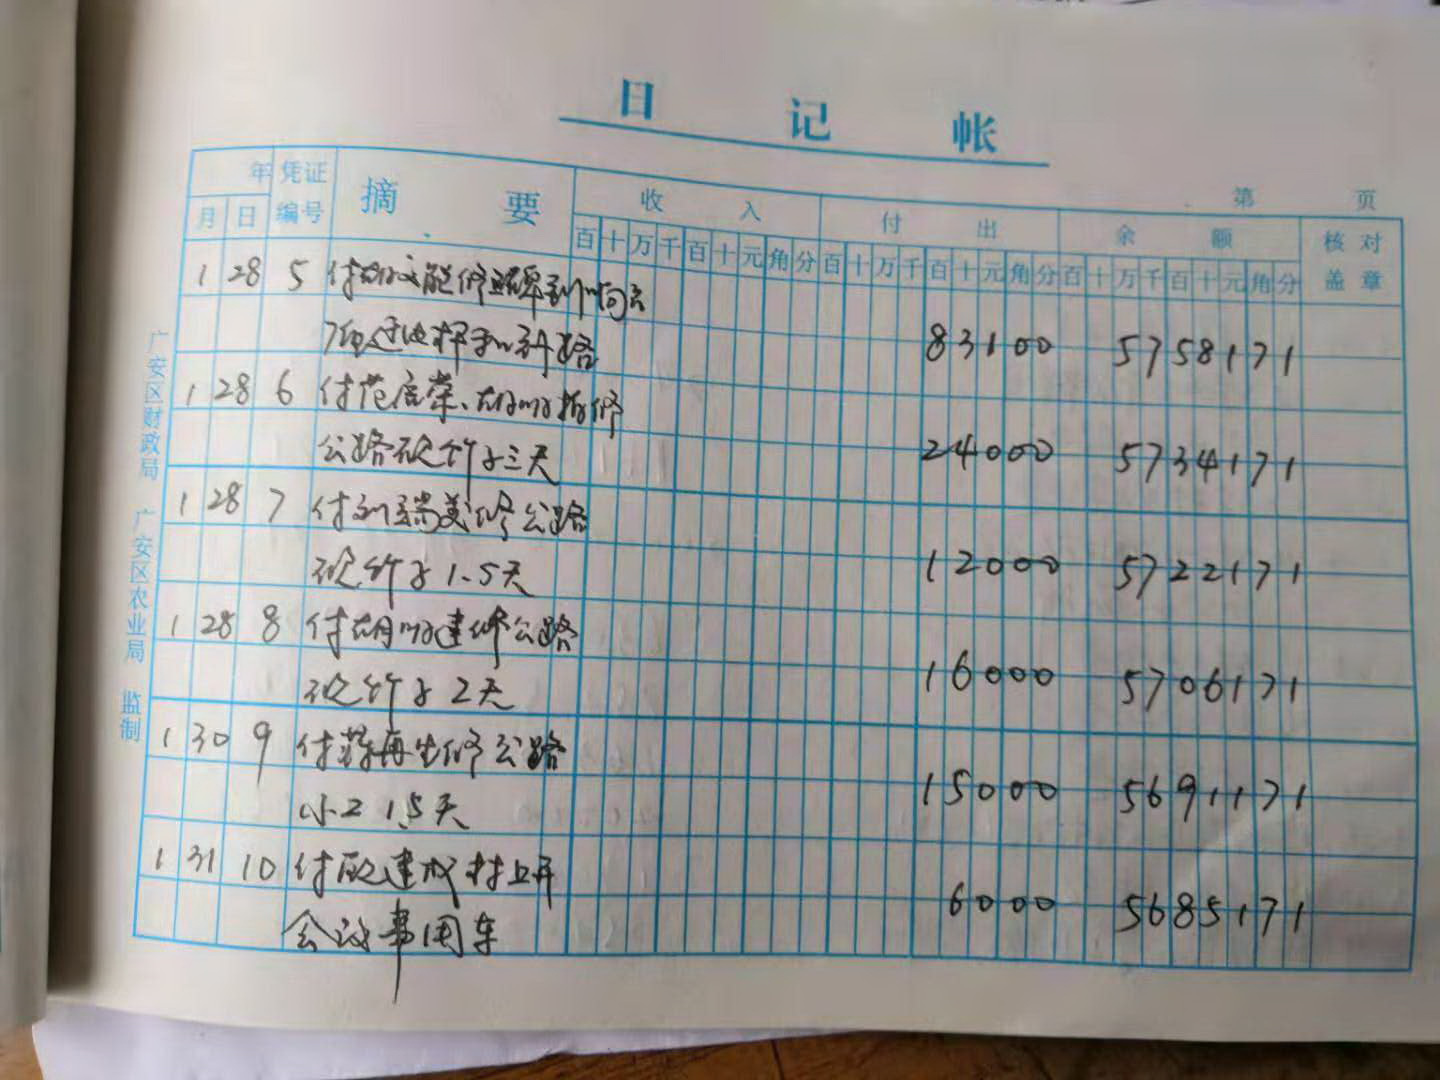 日 记 帐
第 页
年 凭证 摘 要 收 入 付 出 余 额 核 对
月 日 编号 百 十 万 千 百 十 元 角 分 百 十 万 千 百 十 元 角 分 百 十 万 千 百 十 元 角 分 盖 章
1 28 5 付
83100 5758171
1 28 6 付范启荣、修
公路砍竹子三天 24000 5734171
1 28 7 付刘瑞美修公路
砍竹子1.5天 12000 5722171
1 28 8 付胡建修公路
砍竹子2天 16000 5706171
1 30 9 付蒋再生修公路
小工1.5天 15000 5691171
1 31 10 付欧建成村上开
会议事用车 6000 5685171
广安区财政局 广安区农业局 监制